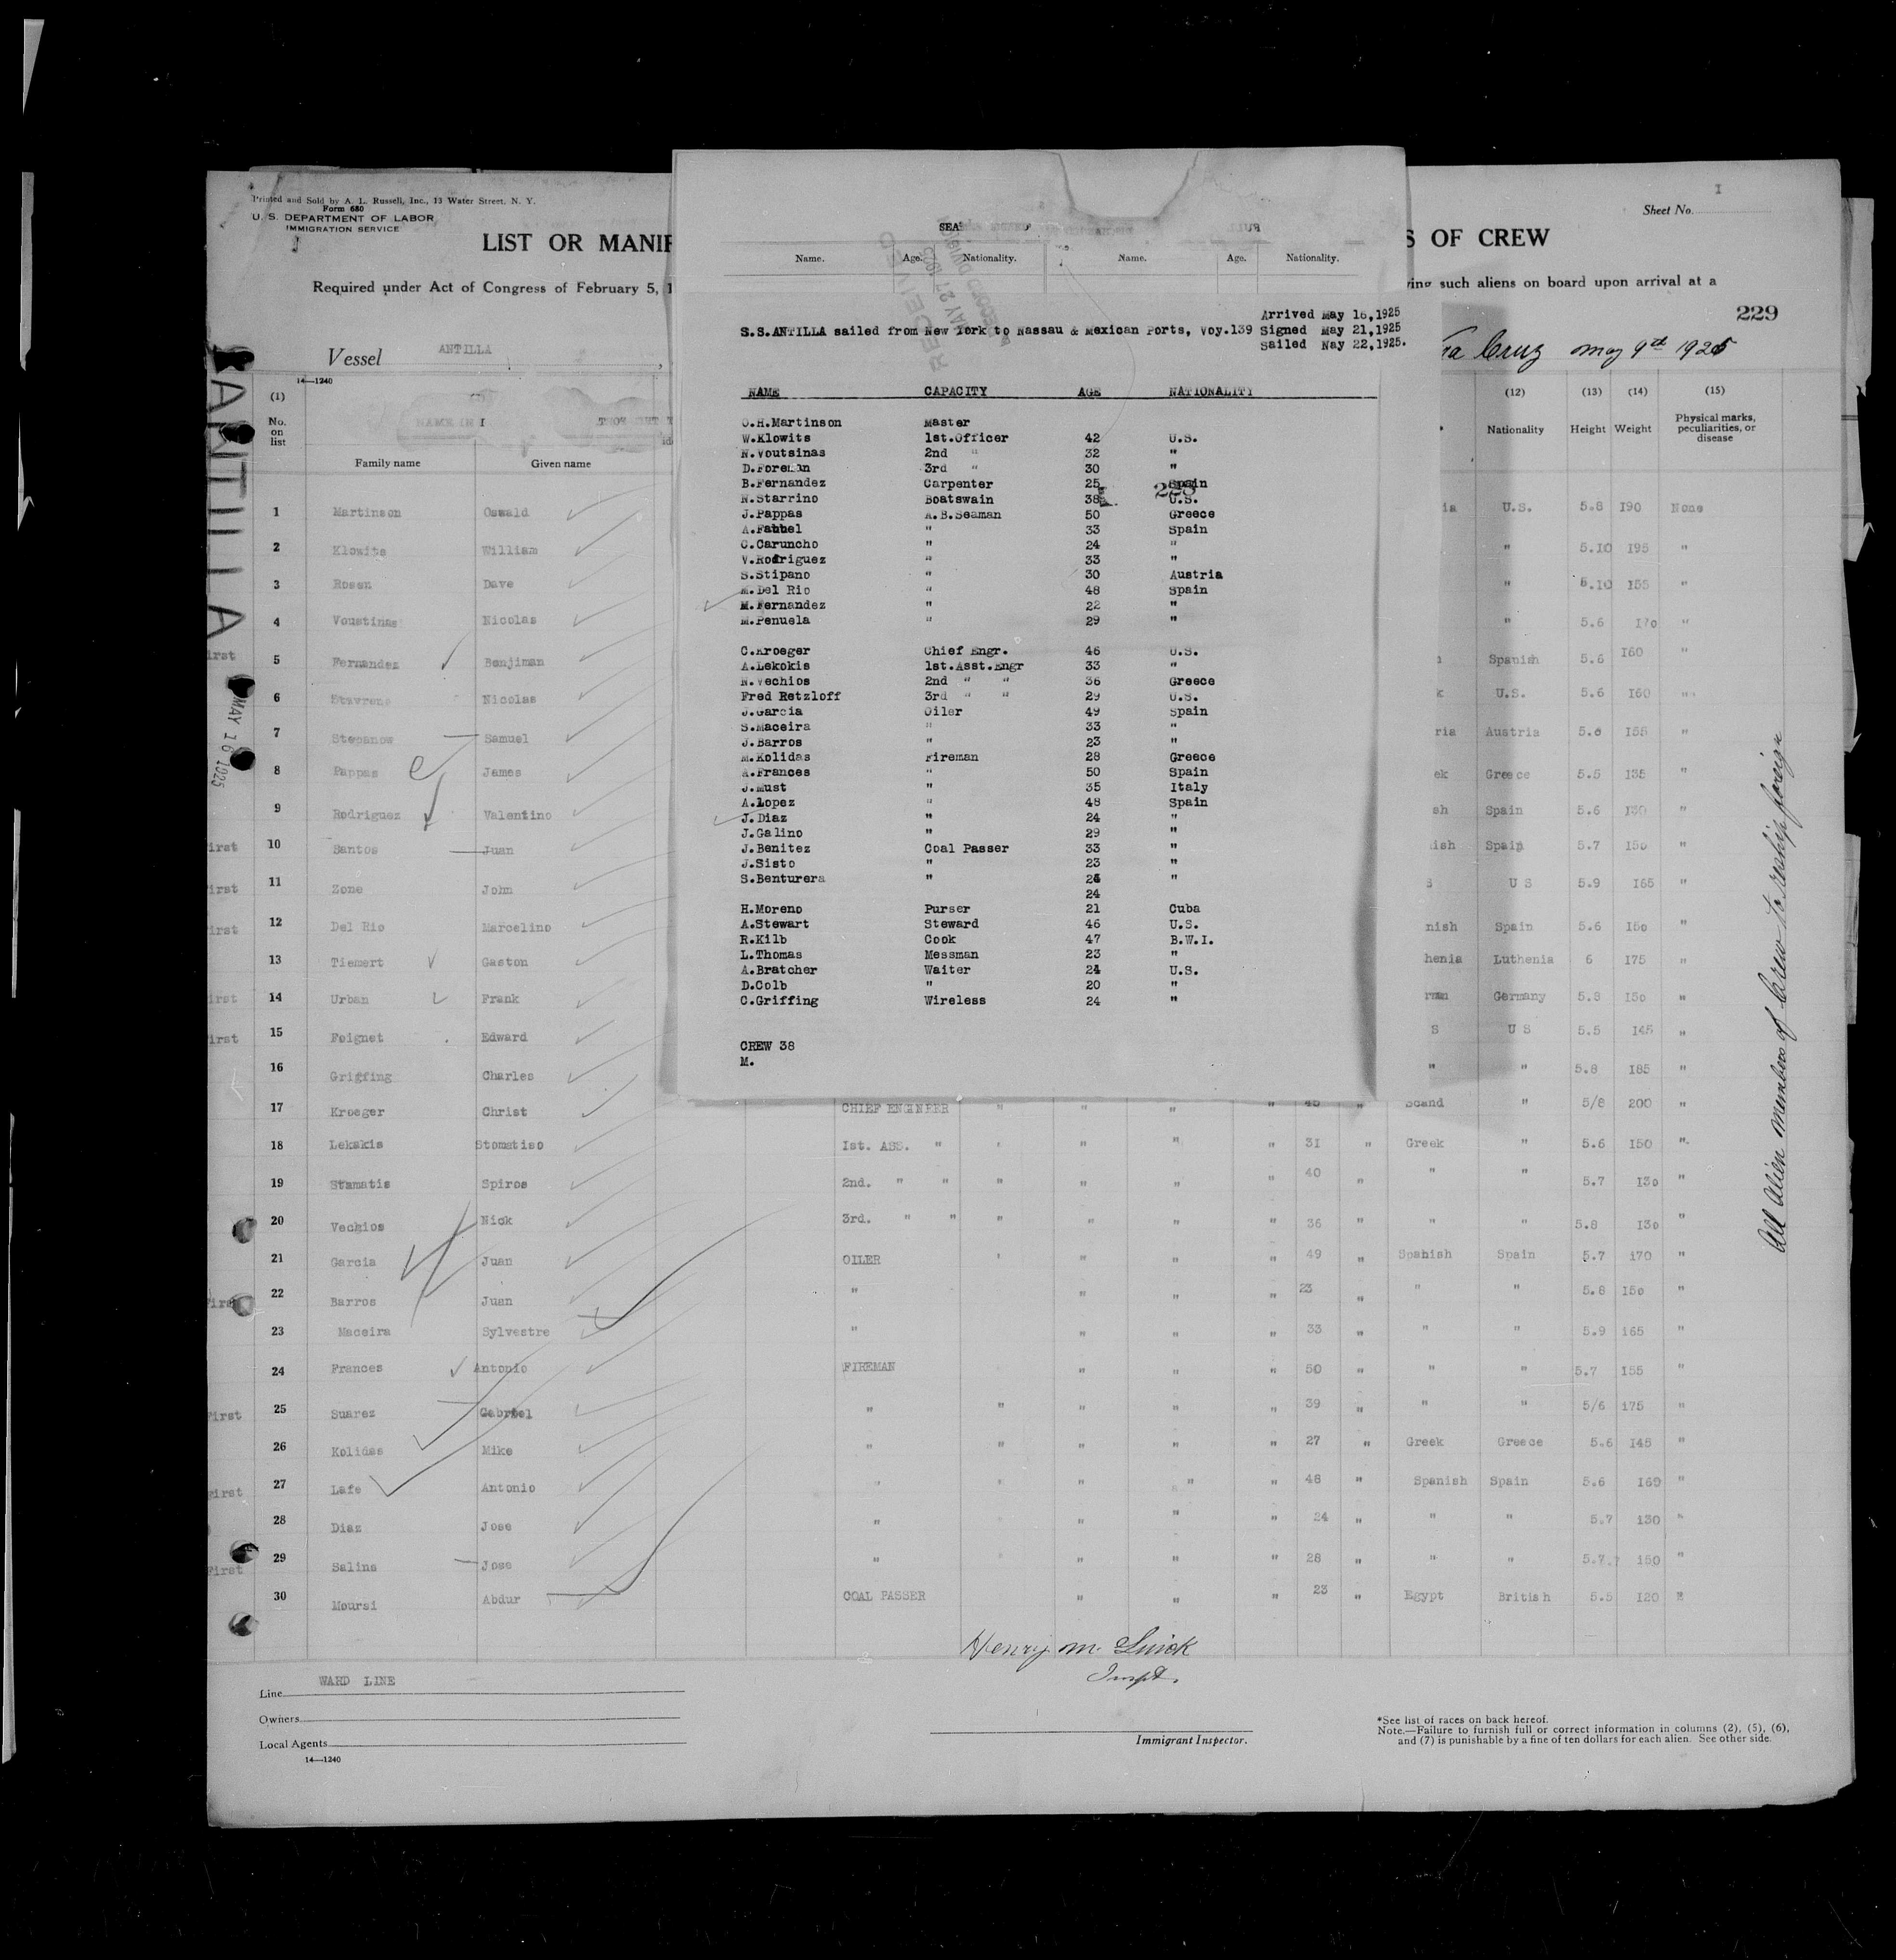 Printed and Sold by A. L. Russell, Inc., 13 Water Street, N. Y.
Form 680
U. S. DEPARTMENT OF LABOR
IMMIGRATION SERVICE
I
Sheet No.
LIST OR MANIF
S OF CREW
Required under Act of Congress of February 5, 1
ving such aliens on board upon arrival at a
229
Vessel ANTILLA
ra Cruz may 9th 1925
14—1240
(1) No. on list
Family name Given name
(12) Nationality (13) Height (14) Weight (15) Physical marks, peculiarities, or disease
ANTILLA
MAY 16 1925
1 Martinson Oswald ia U.S. 5.8 190 None
2 Klowits William " 5.10 195 "
3 Rosen Dave " 5.10 155 "
4 Voustinas Nicolas " 5.6 170 "
irst 5 Fernandez Benjiman Spanish 5.6 160 "
6 Nicolas k U.S. 5.6 160 "
7 Stepanow Samuel ria Austria 5.6 155 "
8 Pappas James ek Greece 5.5 135 "
9 Rodriguez Valentino sh Spain 5.6 130 "
irst 10 Santos Juan ish Spain 5.7 150 "
irst 11 Zone John S U S 5.9 165 "
irst 12 Del Rio Marcelino nish Spain 5.6 150 "
13 Tiemert Gaston henia Luthenia 6 175 "
irst 14 Urban Frank rman Germany 5.8 150 "
irst 15 Feignet Edward S U S 5.5 145 "
16 Griffing Charles " " 5.8 185 "
17 Kroeger Christ CHIEF ENGINEER " " " " 45 " Scand " 5/8 200 "
18 Lekakis Stomatiso 1st. ASS. " " " " " 31 " Greek " 5.6 150 "
19 Stamatis Spiros 2nd. " " " " " " 40 " " " 5.7 130 "
20 Vechios Nick 3rd. " " " " " " 36 " " " 5.8 130 "
21 Garcia Juan OILER " " " " 49 " Spanish Spain 5.7 170 "
First 22 Barros Juan " " " " 23 " " " 5.8 150 "
23 Maceira Sylvestre " " " " 33 " " " 5.9 165 "
24 Frances Antonio FIREMAN " " " 50 " " " 5.7 155 "
First 25 Suarez Gabriel " " " " " 39 " " " 5/6 175 "
26 Kolidas Mike " " " " " 27 " Greek Greece 5.6 145 "
First 27 Lafe Antonio " " " " " 48 " Spanish Spain 5.6 160 "
28 Diaz Jose " " " " 24 " " " 5.7 130 "
First 29 Salina Jose " " " " " 28 " " " 5.7 150 "
30 Moursi Abdur COAL PASSER " " " 23 " Egypt British 5.5 120 "
All Alien members of Crew to reship foreign
Henry M. Quick
Inspt.
Line WARD LINE
Owners
Local Agents
14—1240
Immigrant Inspector.
*See list of races on back hereof.
Note.—Failure to furnish full or correct information in columns (2), (5), (6),
and (7) is punishable by a fine of ten dollars for each alien. See other side.
SEA
Name. Age. Nationality. Name. Age. Nationality.
RECEIVED
MAY 27 1925
RECORD DIVISION
Arrived May 16,1925
S.S.ANTILLA sailed from New York to Nassau & Mexican Ports, Voy.139 Signed May 21,1925
Sailed May 22,1925.
NAME CAPACITY AGE NATIONALITY
O.H.Martinson Master
W.Klowits 1st.Officer 42 U.S.
N.Voutsinas 2nd " 32 "
D.Foreman 3rd " 30 "
B.Fernandez Carpenter 25 Spain
228
N.Starrino Boatswain 38 U.S.
J.Pappas A.B.Seaman 50 Greece
A. " 33 Spain
C.Caruncho " 24 "
V.Rodriguez " 33 "
S.Stipano " 30 Austria
M.Del Rio " 48 Spain
M.Fernandez " 22 "
M.Penuela " 29 "
C.Kroeger Chief Engr. 46 U.S.
A.Lekokis 1st.Asst.Engr 33 "
N.Vechios 2nd " " 36 Greece
Fred Retzloff 3rd " " 29 U.S.
J.Garcia Oiler 49 Spain
S.Maceira " 33 "
J.Barros " 23 "
M.Kolidas Fireman 28 Greece
A.Frances " 50 Spain
J.Must " 35 Italy
A.Lopez " 48 Spain
J.Diaz " 24 "
J.Galino " 29 "
J.Benitez Coal Passer 33 "
J.Sisto " 23 "
S.Benturera " 24 "
24
H.Moreno Purser 21 Cuba
A.Stewart Steward 46 U.S.
R.Kilb Cook 47 B.W.I.
L.Thomas Messman 23 "
A.Bratcher Waiter 24 U.S.
D.Colb " 20 "
C.Griffing Wireless 24 "
CREW 38
M.